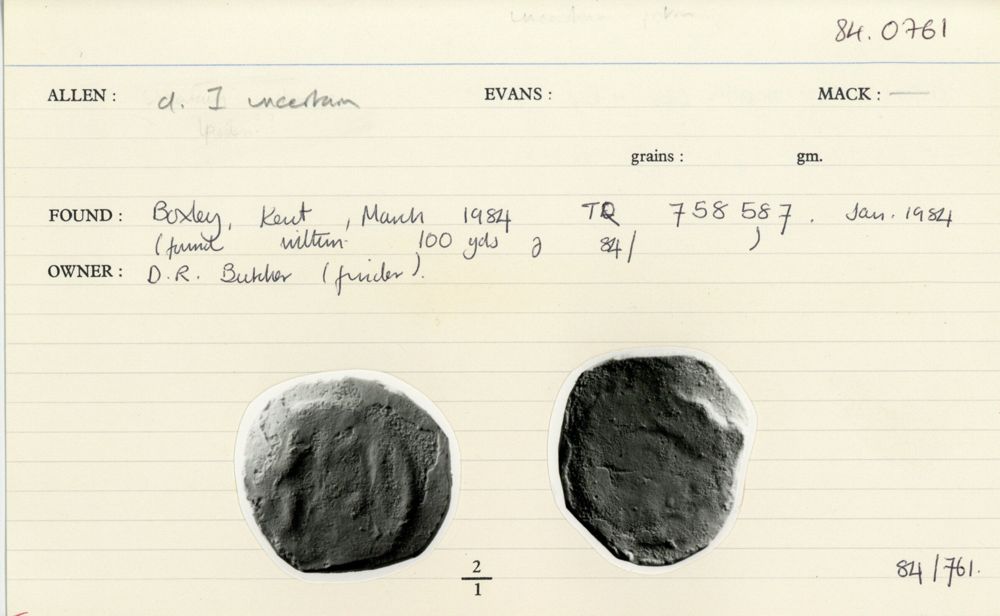 84.0761
ALLEN : cl. I uncertain
EVANS :
MACK : —
grains :
gm.
FOUND : Boxley, Kent, March 1984 TQ 758 587. Jan. 1984
(found within 100 yds of 84/ )
OWNER : D.R. Butcher (finder).
2
1
84/761.